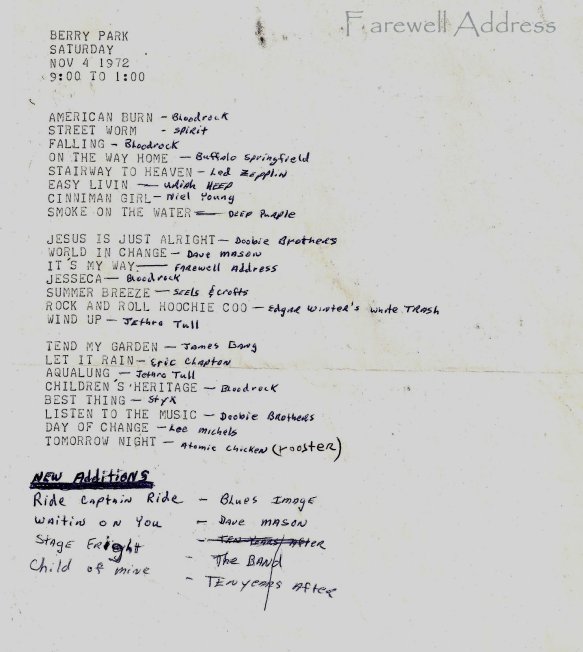 Farewell Address
BERRY PARK
SATURDAY
NOV 4 1972
9:00 TO 1:00
AMERICAN BURN - Bloodrock
STREET WORM - Spirit
FALLING - Bloodrock
ON THE WAY HOME - Buffalo Springfield
STAIRWAY TO HEAVEN - Led Zepplin
EASY LIVIN - Uriah HEEP
CINNIMAN GIRL - Niel Young
SMOKE ON THE WATER - DEEP Purple
JESUS IS JUST ALRIGHT - Doobie Brothers
WORLD IN CHANGE - Dave MASON
IT'S MY WAY - FAREWELL Address
JESSECA - Bloodrock
SUMMER BREEZE - SEELS & Crofts
ROCK AND ROLL HOOCHIE COO - Edgar Winter's White TRASH
WIND UP - Jethro Tull
TEND MY GARDEN - James Gang
LET IT RAIN - Eric Clapton
AQUALUNG - Jethro Tull
CHILDREN'S HERITAGE - Bloodrock
BEST THING - Styx
LISTEN TO THE MUSIC - Doobie Brothers
DAY OF CHANGE - Lee Michels
TOMORROW NIGHT - Atomic Chicken (rooster)
NEW Additions
Ride Captain Ride - Blues IMAGE
WAITIN ON YOU - DAVE MASON
STAGE FRight - TEN YEARS AFTER
- The BAND
Child of mine - TEN years AFTER